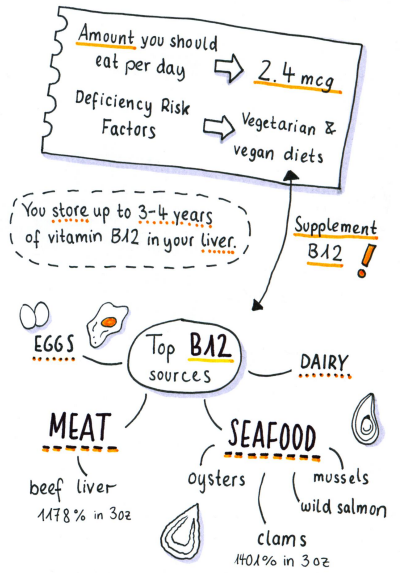 Amount you should
eat per day
2.4 mcg
Deficiency Risk
Factors
Vegetarian &
vegan diets
You store up to 3-4 years
of vitamin B12 in your liver.
Supplement
B12 !
Top B12
sources
EGGS
DAIRY
MEAT
beef liver
1178% in 3oz
SEAFOOD
oysters
mussels
wild salmon
clams
1401% in 3oz